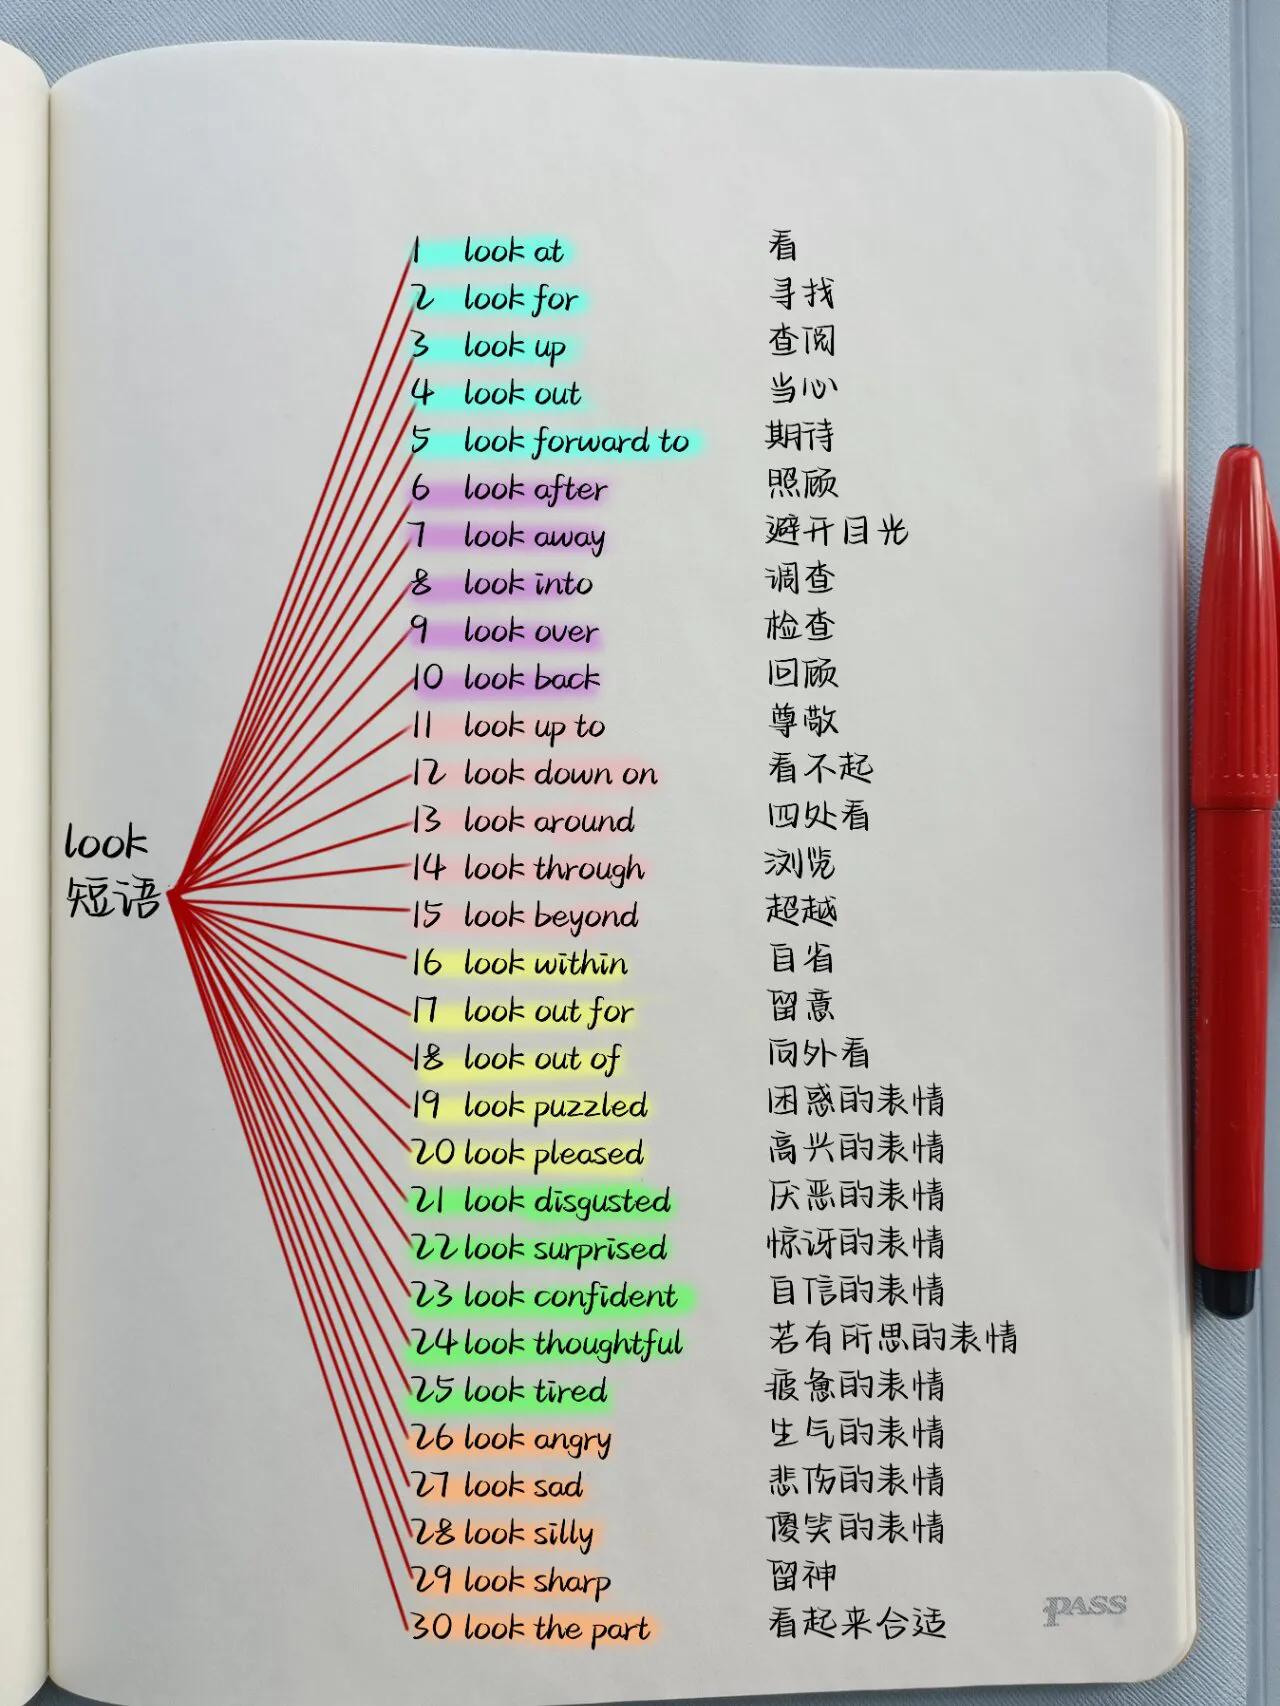 look
短语
1 look at 看
2 look for 寻找
3 look up 查阅
4 look out 当心
5 look forward to 期待
6 look after 照顾
7 look away 避开目光
8 look into 调查
9 look over 检查
10 look back 回顾
11 look up to 尊敬
12 look down on 看不起
13 look around 四处看
14 look through 浏览
15 look beyond 超越
16 look within 自省
17 look out for 留意
18 look out of 向外看
19 look puzzled 困惑的表情
20 look pleased 高兴的表情
21 look disgusted 厌恶的表情
22 look surprised 惊讶的表情
23 look confident 自信的表情
24 look thoughtful 若有所思的表情
25 look tired 疲惫的表情
26 look angry 生气的表情
27 look sad 悲伤的表情
28 look silly 傻笑的表情
29 look sharp 留神
30 look the part 看起来合适
PASS